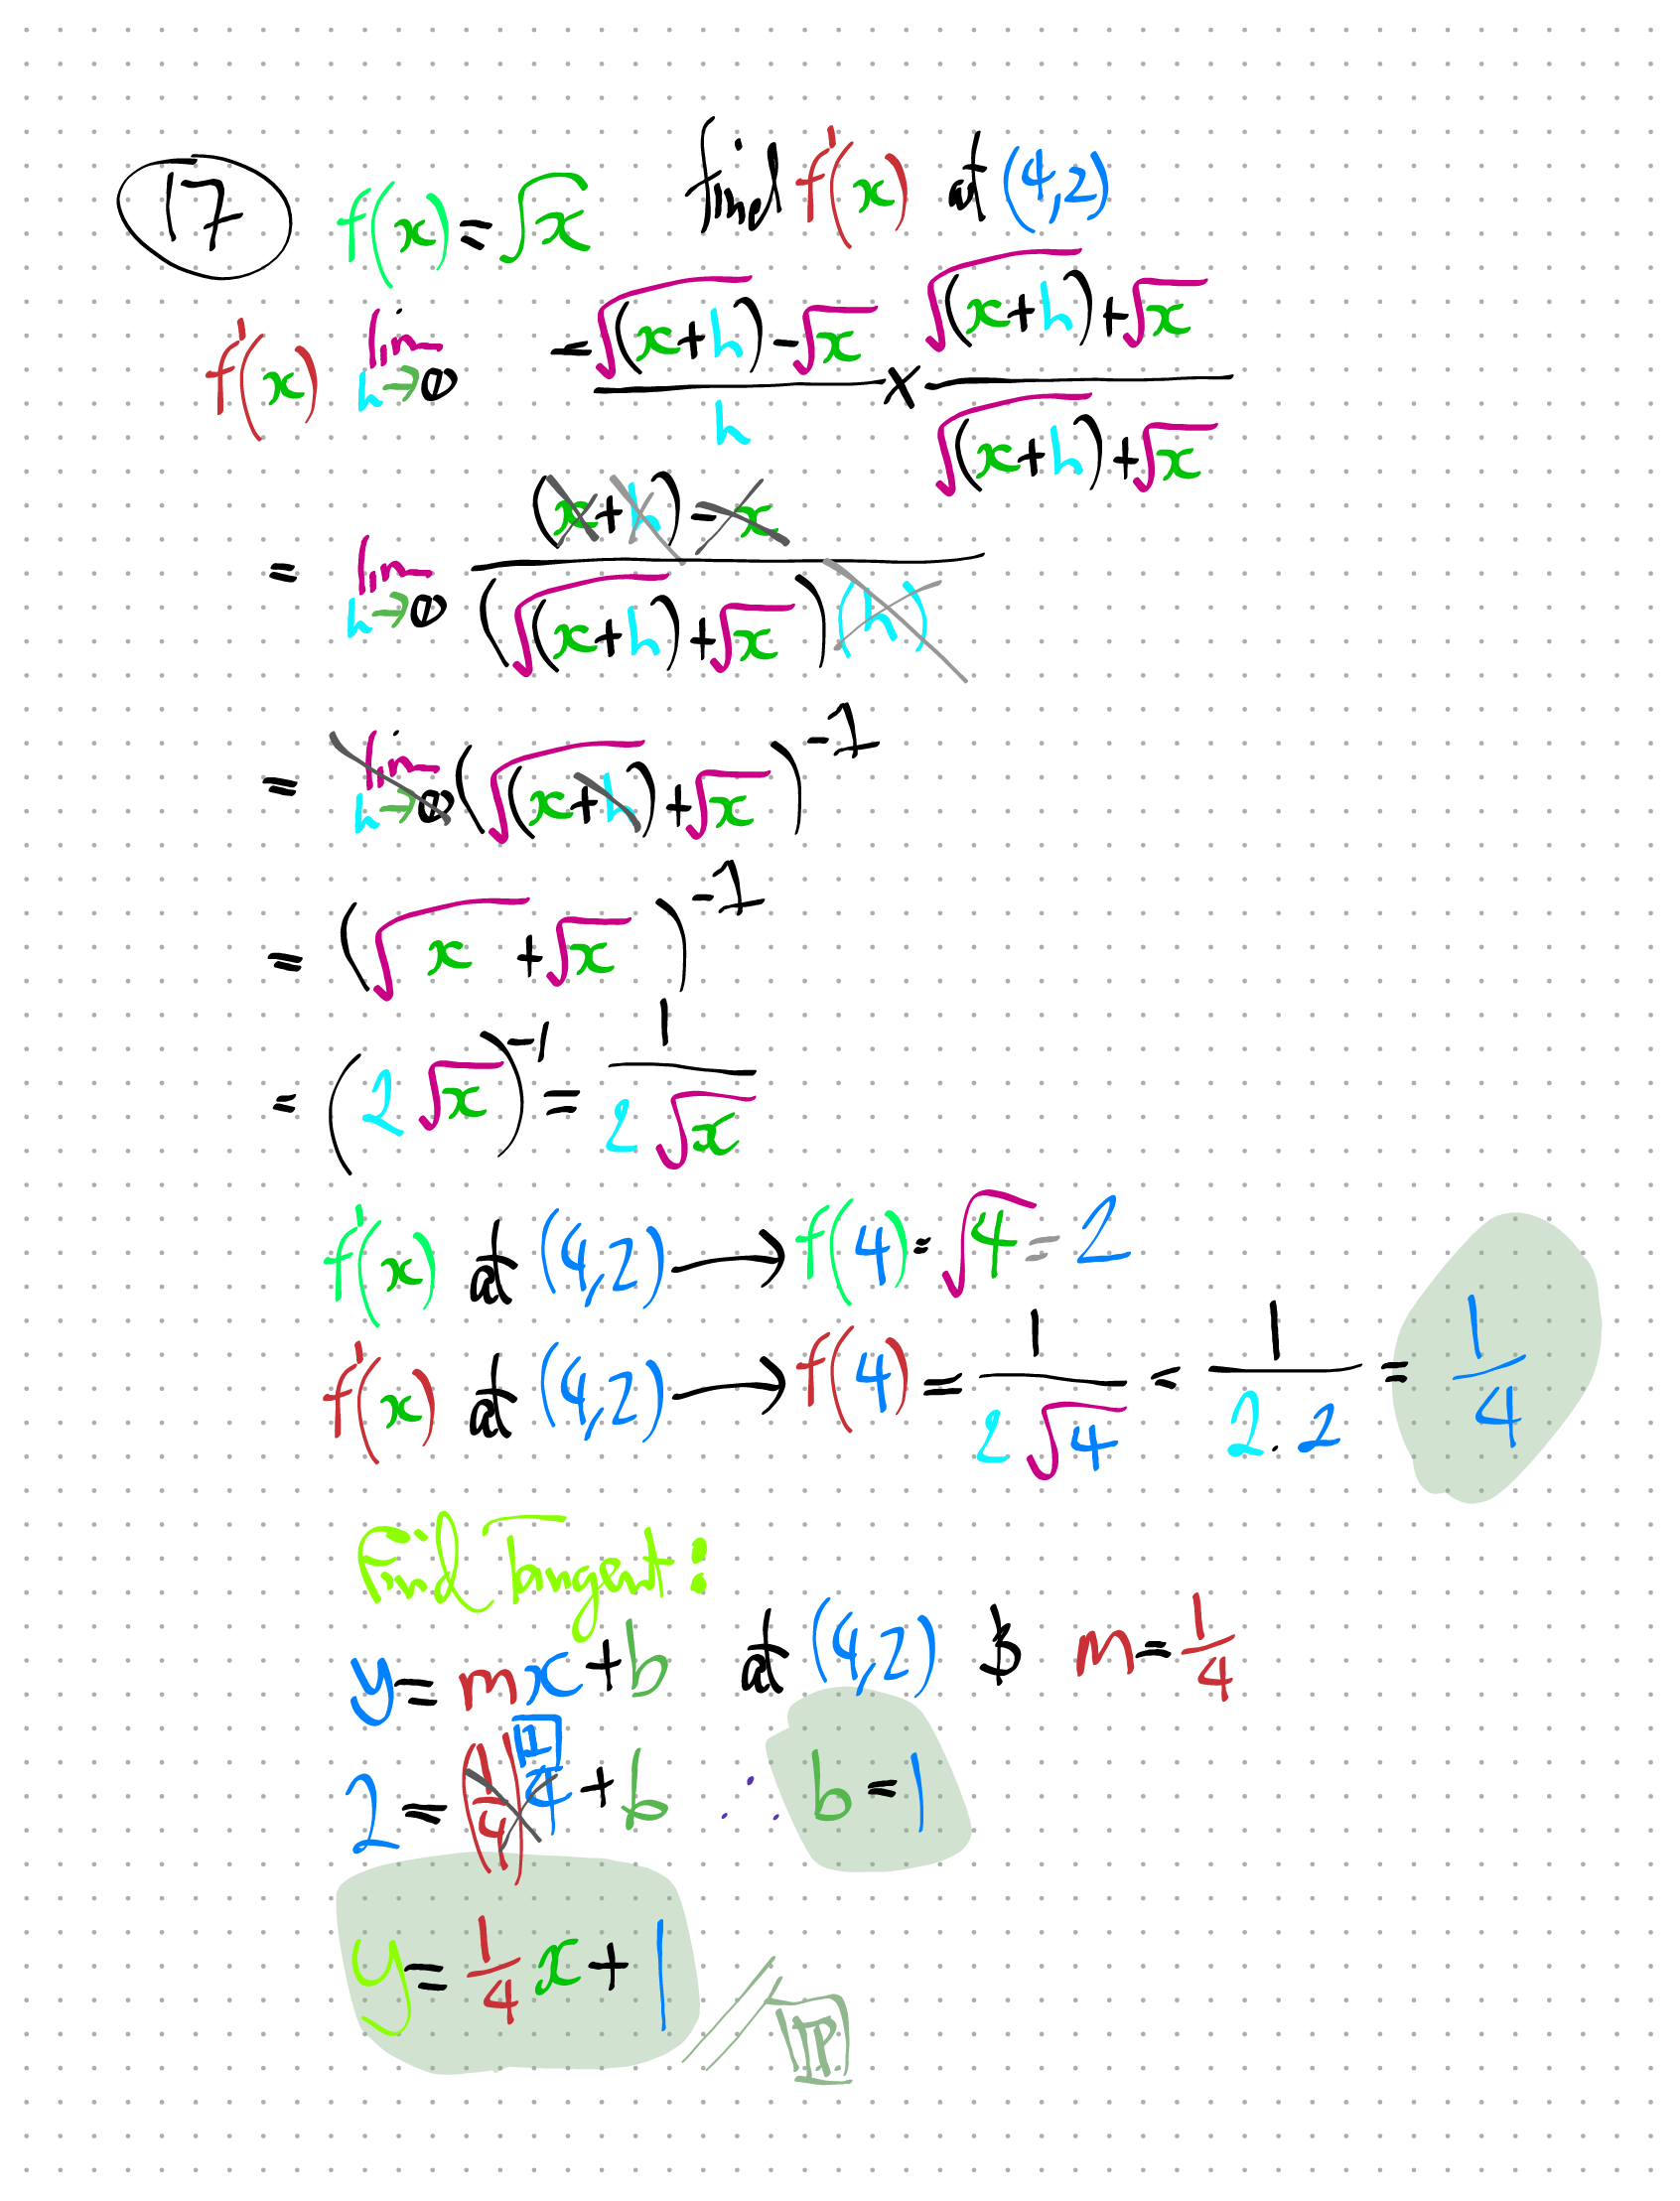 17 f(x) = √x find f'(x) at (4,2)
f'(x) lim h→0 = (√(x+h) - √x)/h × (√(x+h) + √x)/(√(x+h) + √x)
= lim h→0 ((x+h) - x)/((√(x+h) + √x)(h))
= lim h→0 (√(x+h) + √x)^-1
= (√x + √x)^-1
= (2√x)^-1 = 1/(2√x)
f'(x) at (4,2) → f(4) = √4 = 2
f'(x) at (4,2) → f(4) = 1/(2√4) = 1/(2.2) = 1/4
Find Tangent:
y = mx + b at (4,2) & m = 1/4
2 = (1/4) 4 1 + b ∴ b = 1
y = 1/4 x + 1